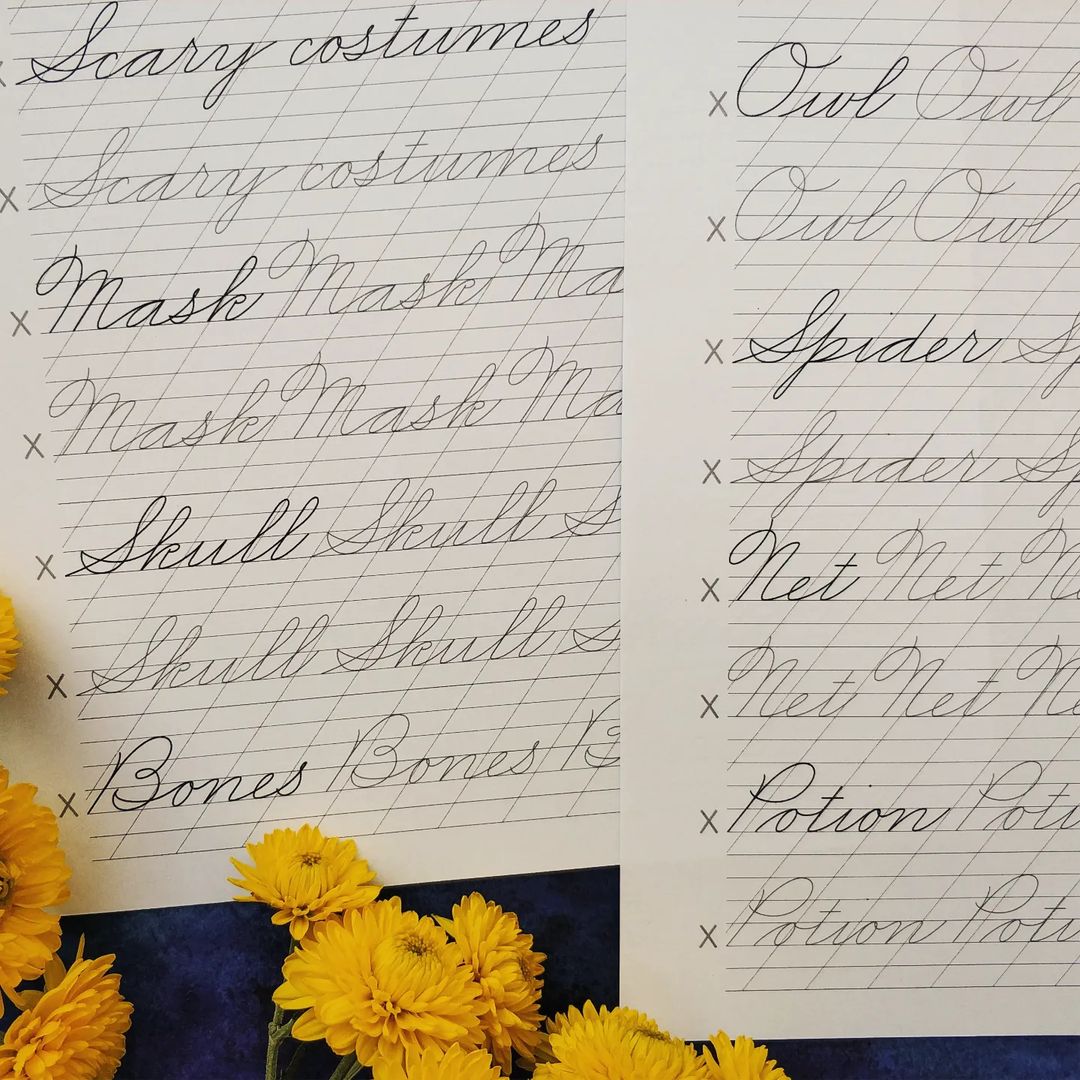 x Scary costumes
x Scary costumes
x Mask Mask Ma
x Mask Mask Ma
x Skull Skull S
x Skull Skull S
x Bones Bones B
x Owl Owl
x Owl Owl
x Spider Sp
x Spider Sp
x Net Net Ne
x Net Net Ne
x Potion Poti
x Potion Poti